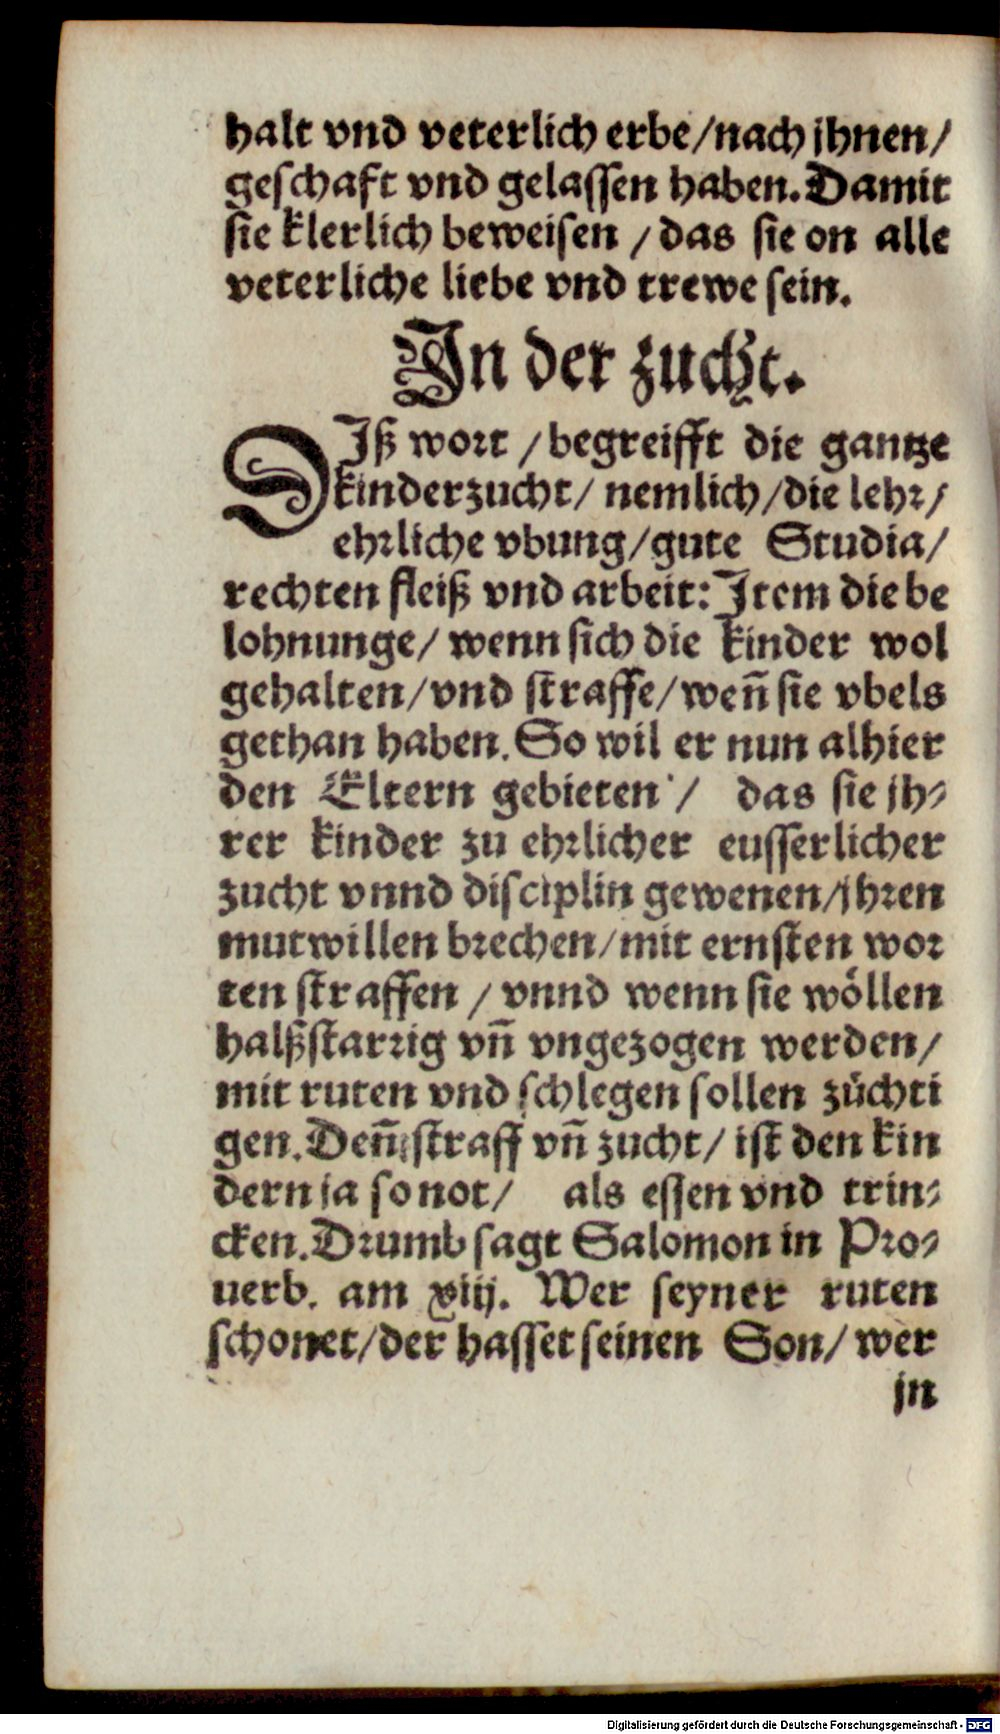 halt vnd veterlich erbe/nach jhnen/
geschaft vnd gelassen haben. Damit
sie klerlich beweisen / das sie on alle
veterliche liebe vnd trewe sein.
In der zucht.
DIß wort / begreifft die gantze
kinderzucht/ nemlich/die lehr/
ehrliche vbung/gute Studia/
rechten fleiß vnd arbeit: Item die be
lohnunge/ wenn sich die kinder wol
gehalten/vnd straffe/weñ sie vbels
gethan haben. So wil er nun alhier
den Eltern gebieten / das sie jh-
rer kinder zu ehrlicher eusserlicher
zucht vnnd disciplin gewenen/jhren
mutwillen brechen/mit ernsten wor
ten straffen / vnnd wenn sie wöllen
halßstarrig vñ vngezogen werden/
mit ruten vnd schlegen sollen züchti
gen. Deñ straff vñ zucht/ ist den kin
dern ja so not/ als essen vnd trin-
cken. Drumb sagt Salomon in Pro-
uerb. am xiij. Wer seyner ruten
schonet/der hasset seinen Son/ wer
jn
Digitalisierung gefördert durch die Deutsche Forschungsgemeinschaft - DFG